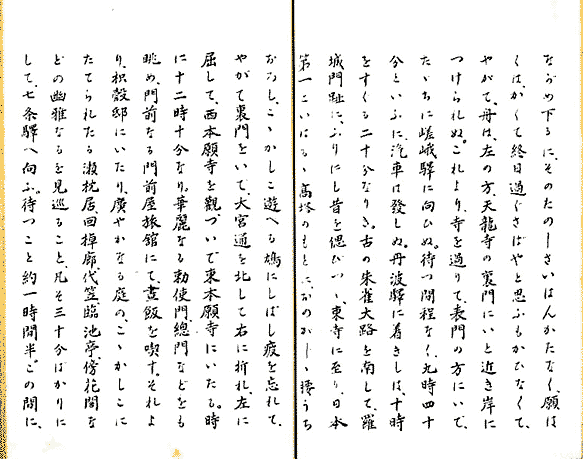 ながめ下るに、そのたのしさいはんかたなく、願は
くは、かくて終日過ぐさばやと思ふもかひなくて、
やがて、舟は、左の方、天龍寺の裏門にいと近き岸に
つけられぬ。これより、寺を過りて、表門の方にいで、
たゞちに嵯峨驛に向ひぬ。待つ間程なく、九時四十
今といふに汽車は發しぬ。丹波驛に着きしは、十時
をすぐる二十分なりき。古の朱雀大路を南して、羅
城門趾に、ふりにし昔を偲びつゝ、東寺に至り、日本
第一といはるゝ高塔のもとに、おのがじゝ携うち
おろし、こゝかしこ遊へる鳩にしばし疲を忘れて、
やがて裏門をいで、大宮通を北して右に折れ、左に
屈して、西本願寺を觀、ついで東本願寺にいたる。時
に十二時十分なり。華麗なる勅使門、總門などをも
眺め、門前なる門前屋旅館にて、晝飯を喫す。それよ
り、枳殻邸にいたり、廣やかなる庭の、こゝかしこに
たてられたる漱枕居、回棹廊、代笠、臨池亭、傍花閣な
どの幽雅なるを見巡ること、凡そ三十分ばかりに
して、七条驛へ向ふ。待つこと約一時間半、この間に、